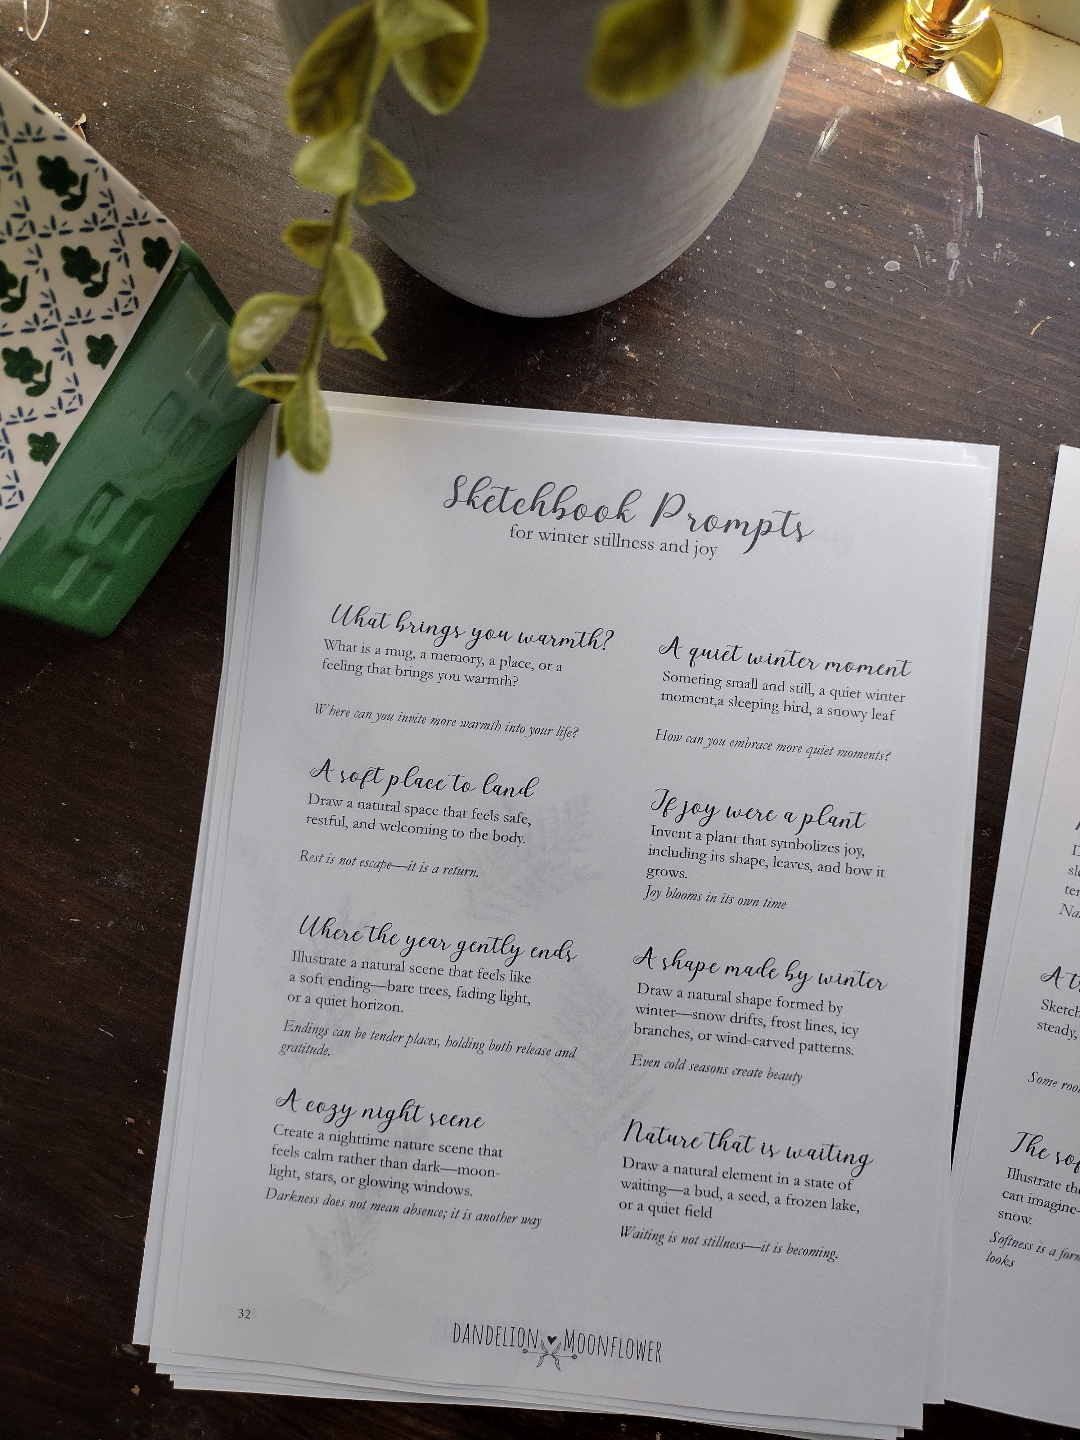 Sketchbook Prompts
for winter stillness and joy
What brings you warmth?
What is a mug, a memory, a place, or a
feeling that brings you warmth?
Where can you invite more warmth into your life?
A soft place to land
Draw a natural space that feels safe,
restful, and welcoming to the body.
Rest is not escape—it is a return.
Where the year gently ends
Illustrate a natural scene that feels like
a soft ending—bare trees, fading light,
or a quiet horizon.
Endings can be tender places, holding both release and
gratitude.
A cozy night scene
Create a nighttime nature scene that
feels calm rather than dark—moon-
light, stars, or glowing windows.
Darkness does not mean absence; it is another way
A quiet winter moment
Someting small and still, a quiet winter
moment,a sleeping bird, a snowy leaf
How can you embrace more quiet moments?
If joy were a plant
Invent a plant that symbolizes joy,
including its shape, leaves, and how it
grows.
Joy blooms in its own time
A shape made by winter
Draw a natural shape formed by
winter—snow drifts, frost lines, icy
branches, or wind-carved patterns.
Even cold seasons create beauty
Nature that is waiting
Draw a natural element in a state of
waiting—a bud, a seed, a frozen lake,
or a quiet field
Waiting is not stillness—it is becoming.
32
DANDELION MOONFLOWER
A
Sketch
steady,
Some
The
Illustrate the
can imagine—
snow.
Softness is a
looks